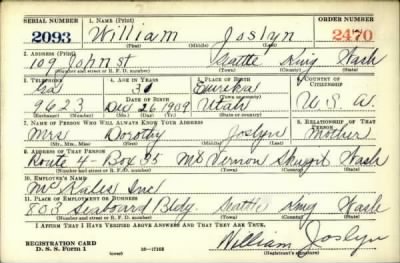 SERIAL NUMBER 1. NAME (Print) ORDER NUMBER
2093 William Joslyn 2470
(First) (Middle) (Last)
2. ADDRESS (Print)
109 John st Seattle King Wash
(Number and street or R. F. D. number) (Town) (County) (State)
3. TELEPHONE 4. AGE IN YEARS 5. PLACE OF BIRTH 6. COUNTRY OF CITIZENSHIP
Ga 31 Eureka
DATE OF BIRTH
9623 Dec 26 1909 Utah U.S.A.
7. NAME OF PERSON WHO WILL ALWAYS KNOW YOUR ADDRESS 8. RELATIONSHIP OF THAT PERSON
Mrs Dorothy Joslyn Mother
(Mr., Mrs., Miss) (First) (Middle) (Last)
9. ADDRESS OF THAT PERSON
Route 4 - Box 95 Mt Vernon Skagit Wash
(Number and street or R. F. D. number) (Town) (County) (State)
10. EMPLOYER'S NAME
Inc
11. PLACE OF EMPLOYMENT OR BUSINESS
803 Seaboard Bldg. Seattle King Wash
(Number and street or R. F. D. number) (Town) (County) (State)
I AFFIRM THAT I HAVE VERIFIED ABOVE ANSWERS AND THAT THEY ARE TRUE.
REGISTRATION CARD
D. S. S. Form 1 (over) 16—17105 William Joslyn